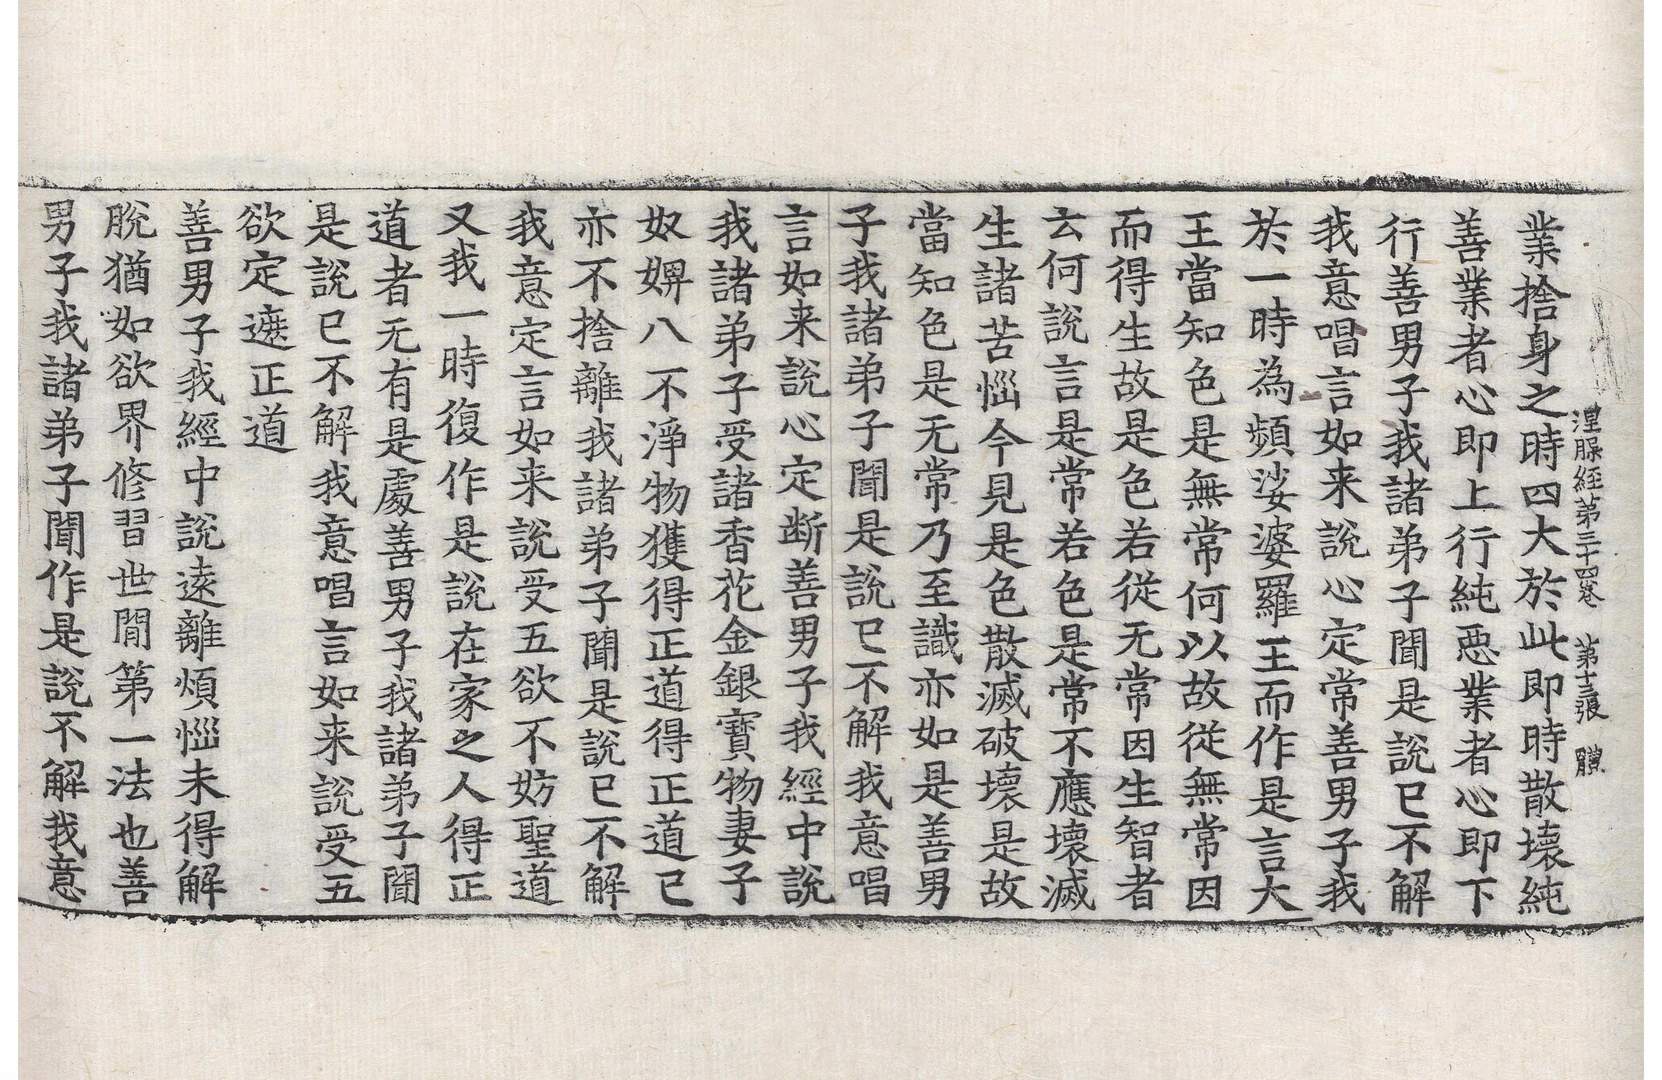 涅槃經第三十四卷 第十三張 體
業捨身之時四大於此即時散壞純
善業者心即上行純惡業者心即下
行善男子我諸弟子聞是說已不解
我意唱言如来說心定常善男子我
於一時為頻娑婆羅王而作是言大
王當知色是無常何以故從無常因
而得生故是色若從无常因生智者
云何說言是常若色是常不應壞滅
生諸苦惱今見是色散滅破壞是故
當知色是无常乃至識亦如是善男
子我諸弟子聞是說已不解我意唱
言如来說心定断善男子我經中說
我諸弟子受諸香花金銀寶物妻子
奴婢八不淨物獲得正道得正道已
亦不捨離我諸弟子聞是說已不解
我意定言如来說受五欲不妨聖道
又我一時復作是說在家之人得正
道者无有是處善男子我諸弟子聞
是說已不解我意唱言如来說受五
欲定遮正道
善男子我經中說遠離煩惱未得解
脫猶如欲界修習世間第一法也善
男子我諸弟子聞作是說不解我意